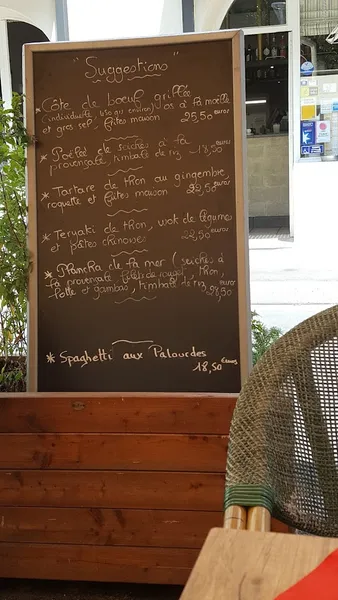 "Suggestions"
* Côte de boeuf grillée
(individuelle environ) os à la moelle
et gros sel, frites maison 25,50 euros
* Poêlée de seiches à la
provençale, timbale de riz 18,50 euros
* Tartare de thon au gingembre,
roquette et frites maison 22,50 euros
* Teryaki de thon, wok de légumes
et pâtes chinoises 22,50 euros
* Plancha de la mer (seiches à
la provençale, filets de rouget, thon,
et gambas, timbale de riz 27,50
* Spaghetti aux Palourdes
18,50 euros